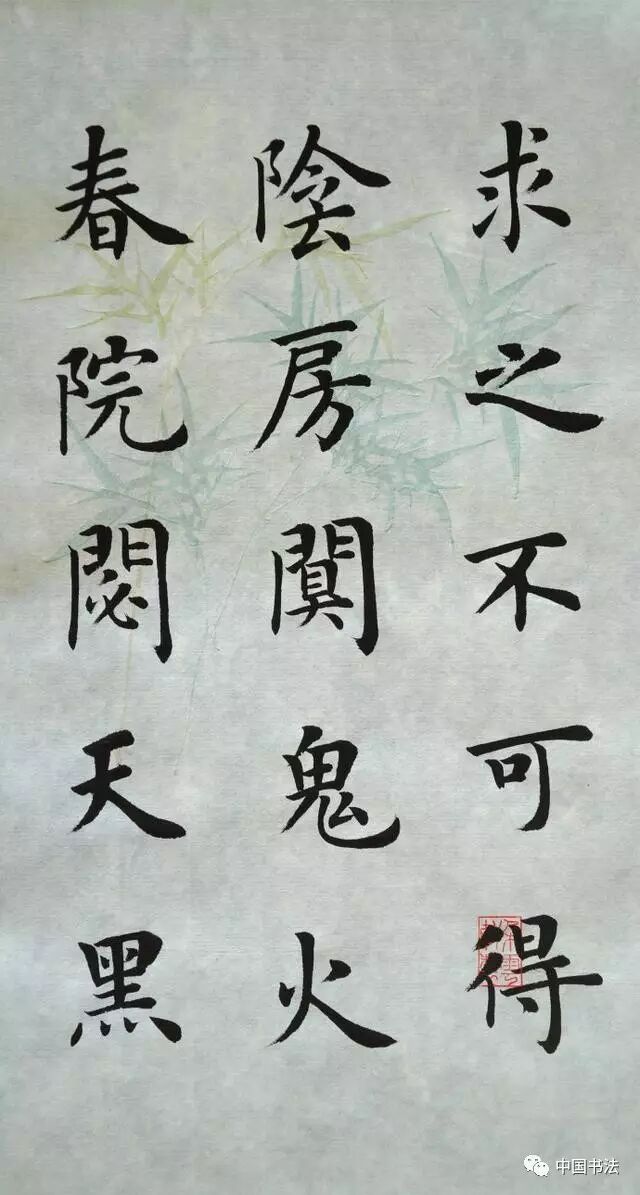 求之不可得
陰房闐鬼火
春院閟天黑
中国书法